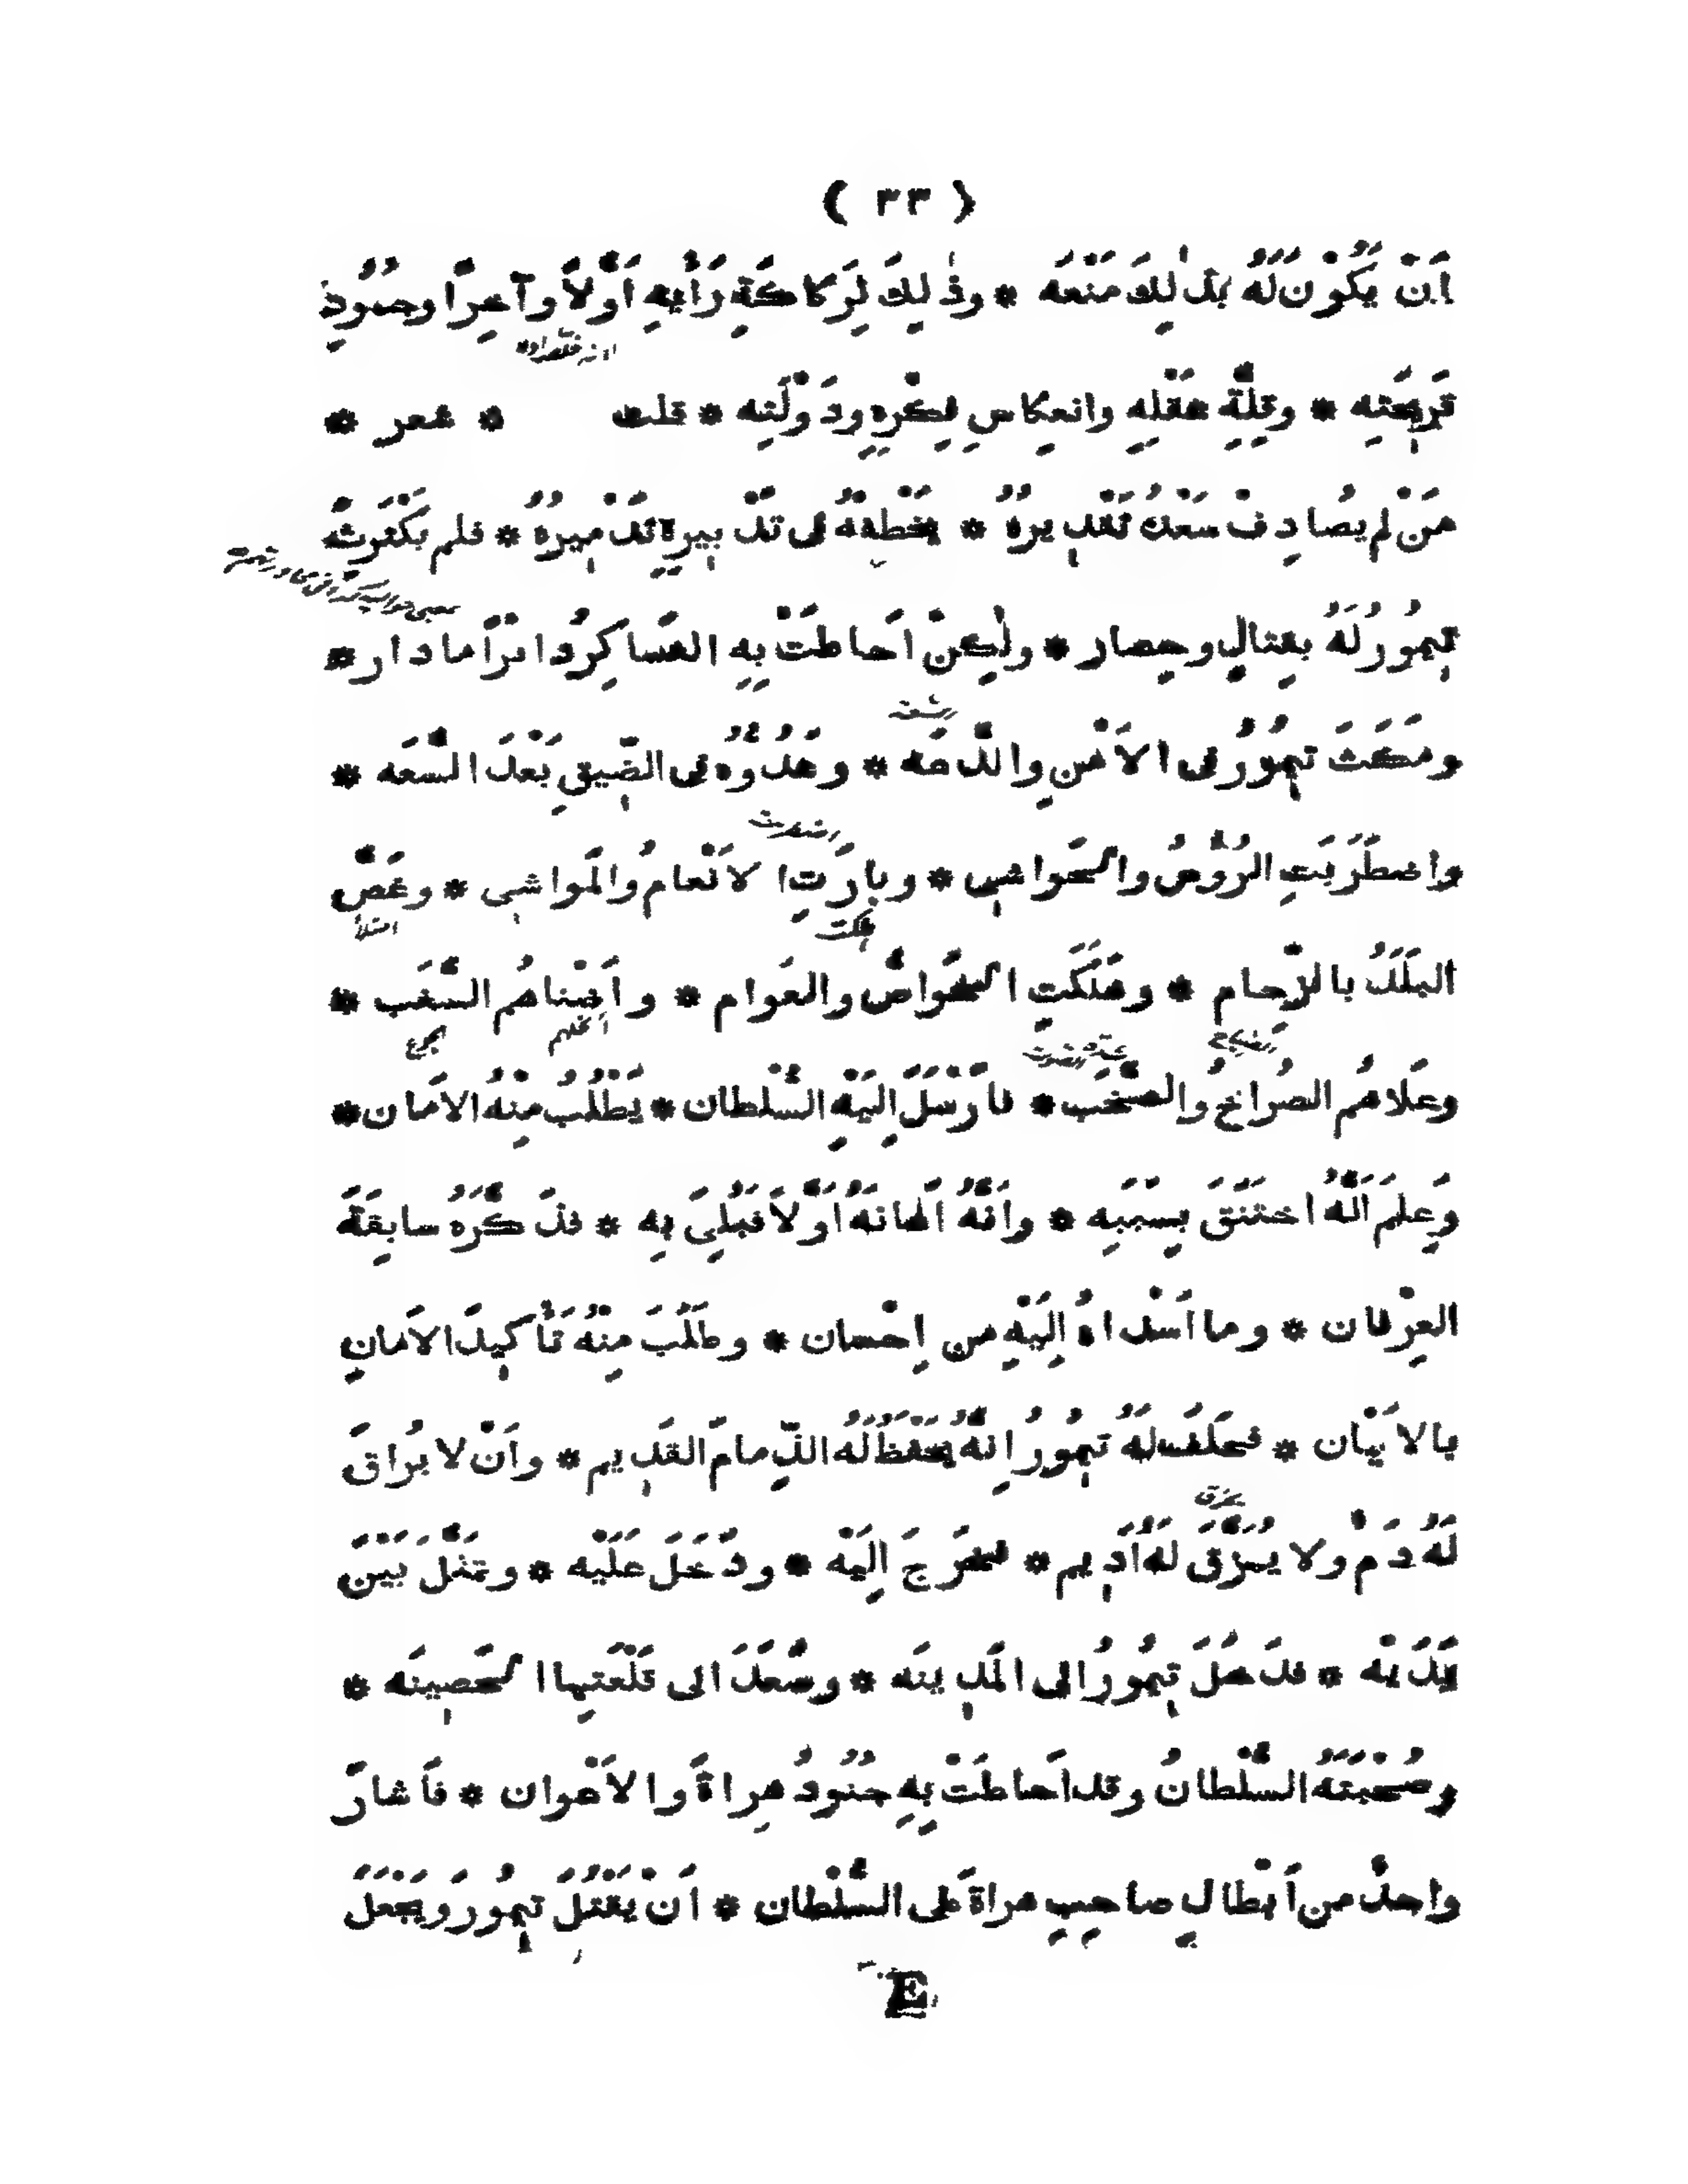 ( ٣٣ )
اَنْ يَكُوْنَ لَهُ بذٰلِكَ مَنَعَه * وذٰلِكَ لِرَكاكَةِ رَأْيِهِ اَوَّلاً وآخِراً وجُمُودِ
قَرِيحَتِه * وقِلَّةِ عَقْلِهِ وانعِكاسِ فِكْرِهِ ودَوْلَتِه * قلت * شعر *
مَنْ لم يُصادِفْ سَعْدُ تَقْدِيرِهُ * يُخْطِفُهُ فى تَدْبِيرِهِ تَدْمِيرُهُ * فلم يَكْتَرِثْ
تِيمُورُ لَهُ بقِتالٍ وحِصار * ولٰكِنْ اَحاطَتْ بِهِ العَساكِرُ دائرًا مادار *
ومَكَثَ تِيمُورُ فى الاَمْنِ والدَّعَه * وعَدُوُّهُ فى الضِّيقِ بَعْدَ السَّعَه *
واضطَرَبَتِ الرُؤُسُ والحَواشى * وبارَتِ الاَنْعامُ والمَواشى * وغَصَّ
البَلَدُ بالزِّحام * وهَلَكَتِ الخَواصُّ والعَوام * وأَضْناهُم السَّغَب *
وعَلاهُم الصُراخُ والصَّخَب * فأَرْسَلَ اِلَيْهِ السُّلْطان * يَطْلُبُ مِنْهُ الاَمان *
وعَلِمَ اَنَّهُ اختَنَقَ بِسَبَبِه * وأَنَّهُ اَعانَهُ اَوَّلاً فبُلِىَ بِه * فذَكَّرَهُ سابِقَةَ
العِرْفان * وما اَسْداهُ اِلَيْهِ من اِحْسان * وطَلَبَ مِنْهُ تَأْكِيدَ الاَمانِ
بالاَيْمان * فحَلَفَ لَهُ تِيمُورُ اِنَّهُ يَحْفَظُ لَهُ الذِّمامَ القَدِيم * واَنْ لا يُراقَ
لَهُ دَمٌ ولا يُمَزَّقَ لَهُ اَدِيم * فخَرَجَ اِلَيْه * ودَخَلَ عَلَيْه * وتَمَثَّلَ بَيْنَ
يَدَيْه * فدَخَلَ تِيمُورُ الى المَدِينَه * وصَعَدَ الى قَلْعَتِها الحَصِينَه *
وصُحْبَتَهُ السُّلْطانُ وقد اَحاطَتْ بِهِ جُنُودُ هِراةَ والاَعْوان * فأَشارَ
واحدٌ من اَبْطالِ صاحِبِ هراةَ على السُّلْطان * اَنْ يَقْتُلَ تِيمُورَ ويَجْعَلَ
E